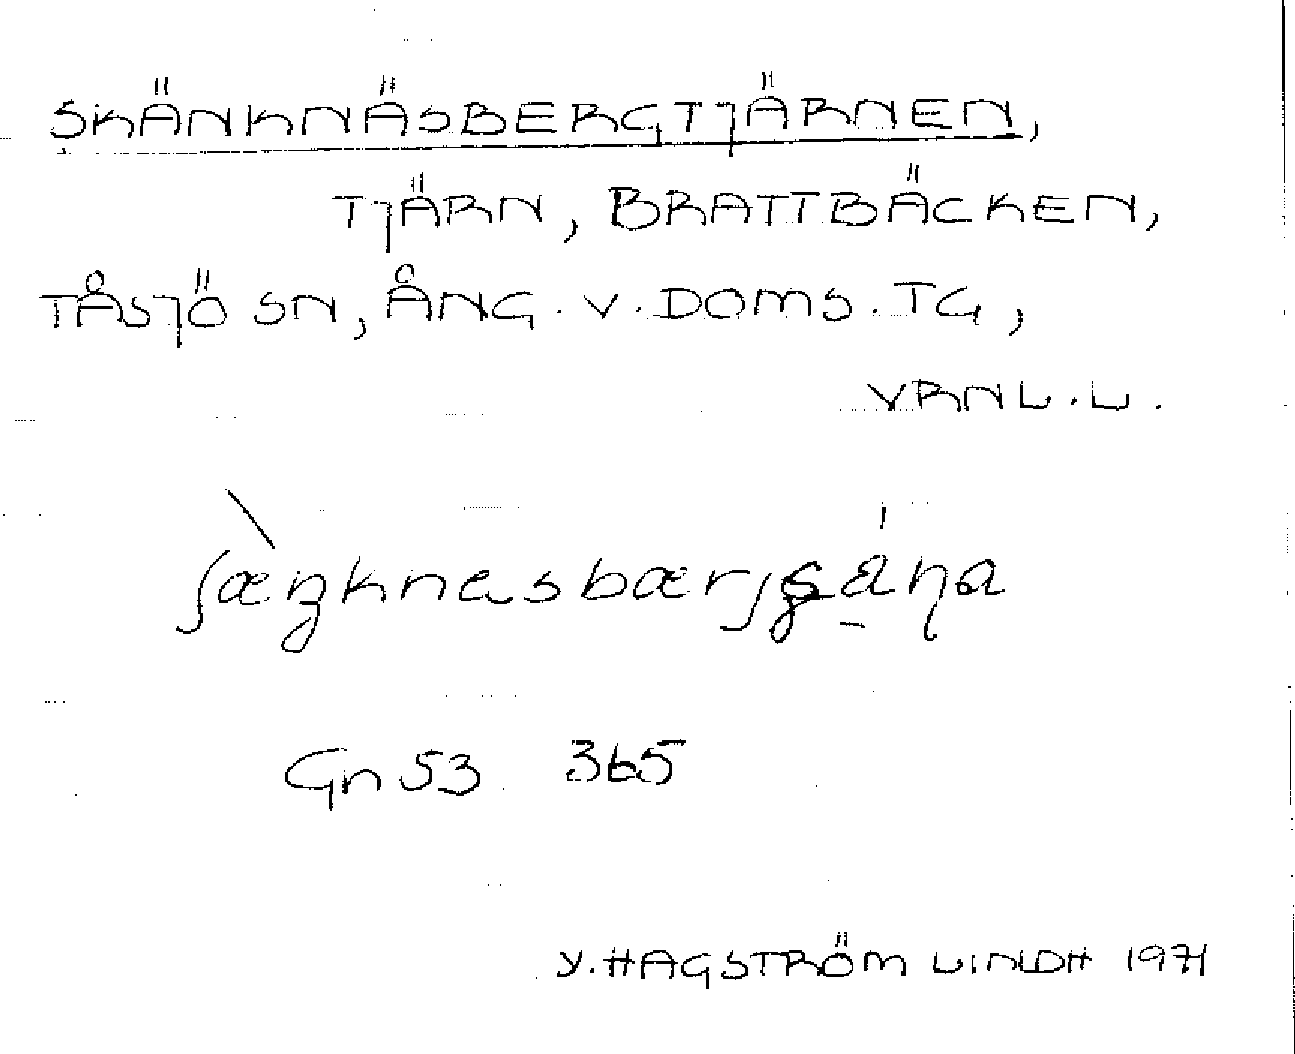 SKÄNKNÄSBERGTJÄRNEN,
TJÄRN, BRATTBÄCKEN,
TÅSJÖ SN, ÅNG. V. DOMS. TG,
VRNL. L.
Gn 53 365
Y. HAGSTRÖM LINDH 1971